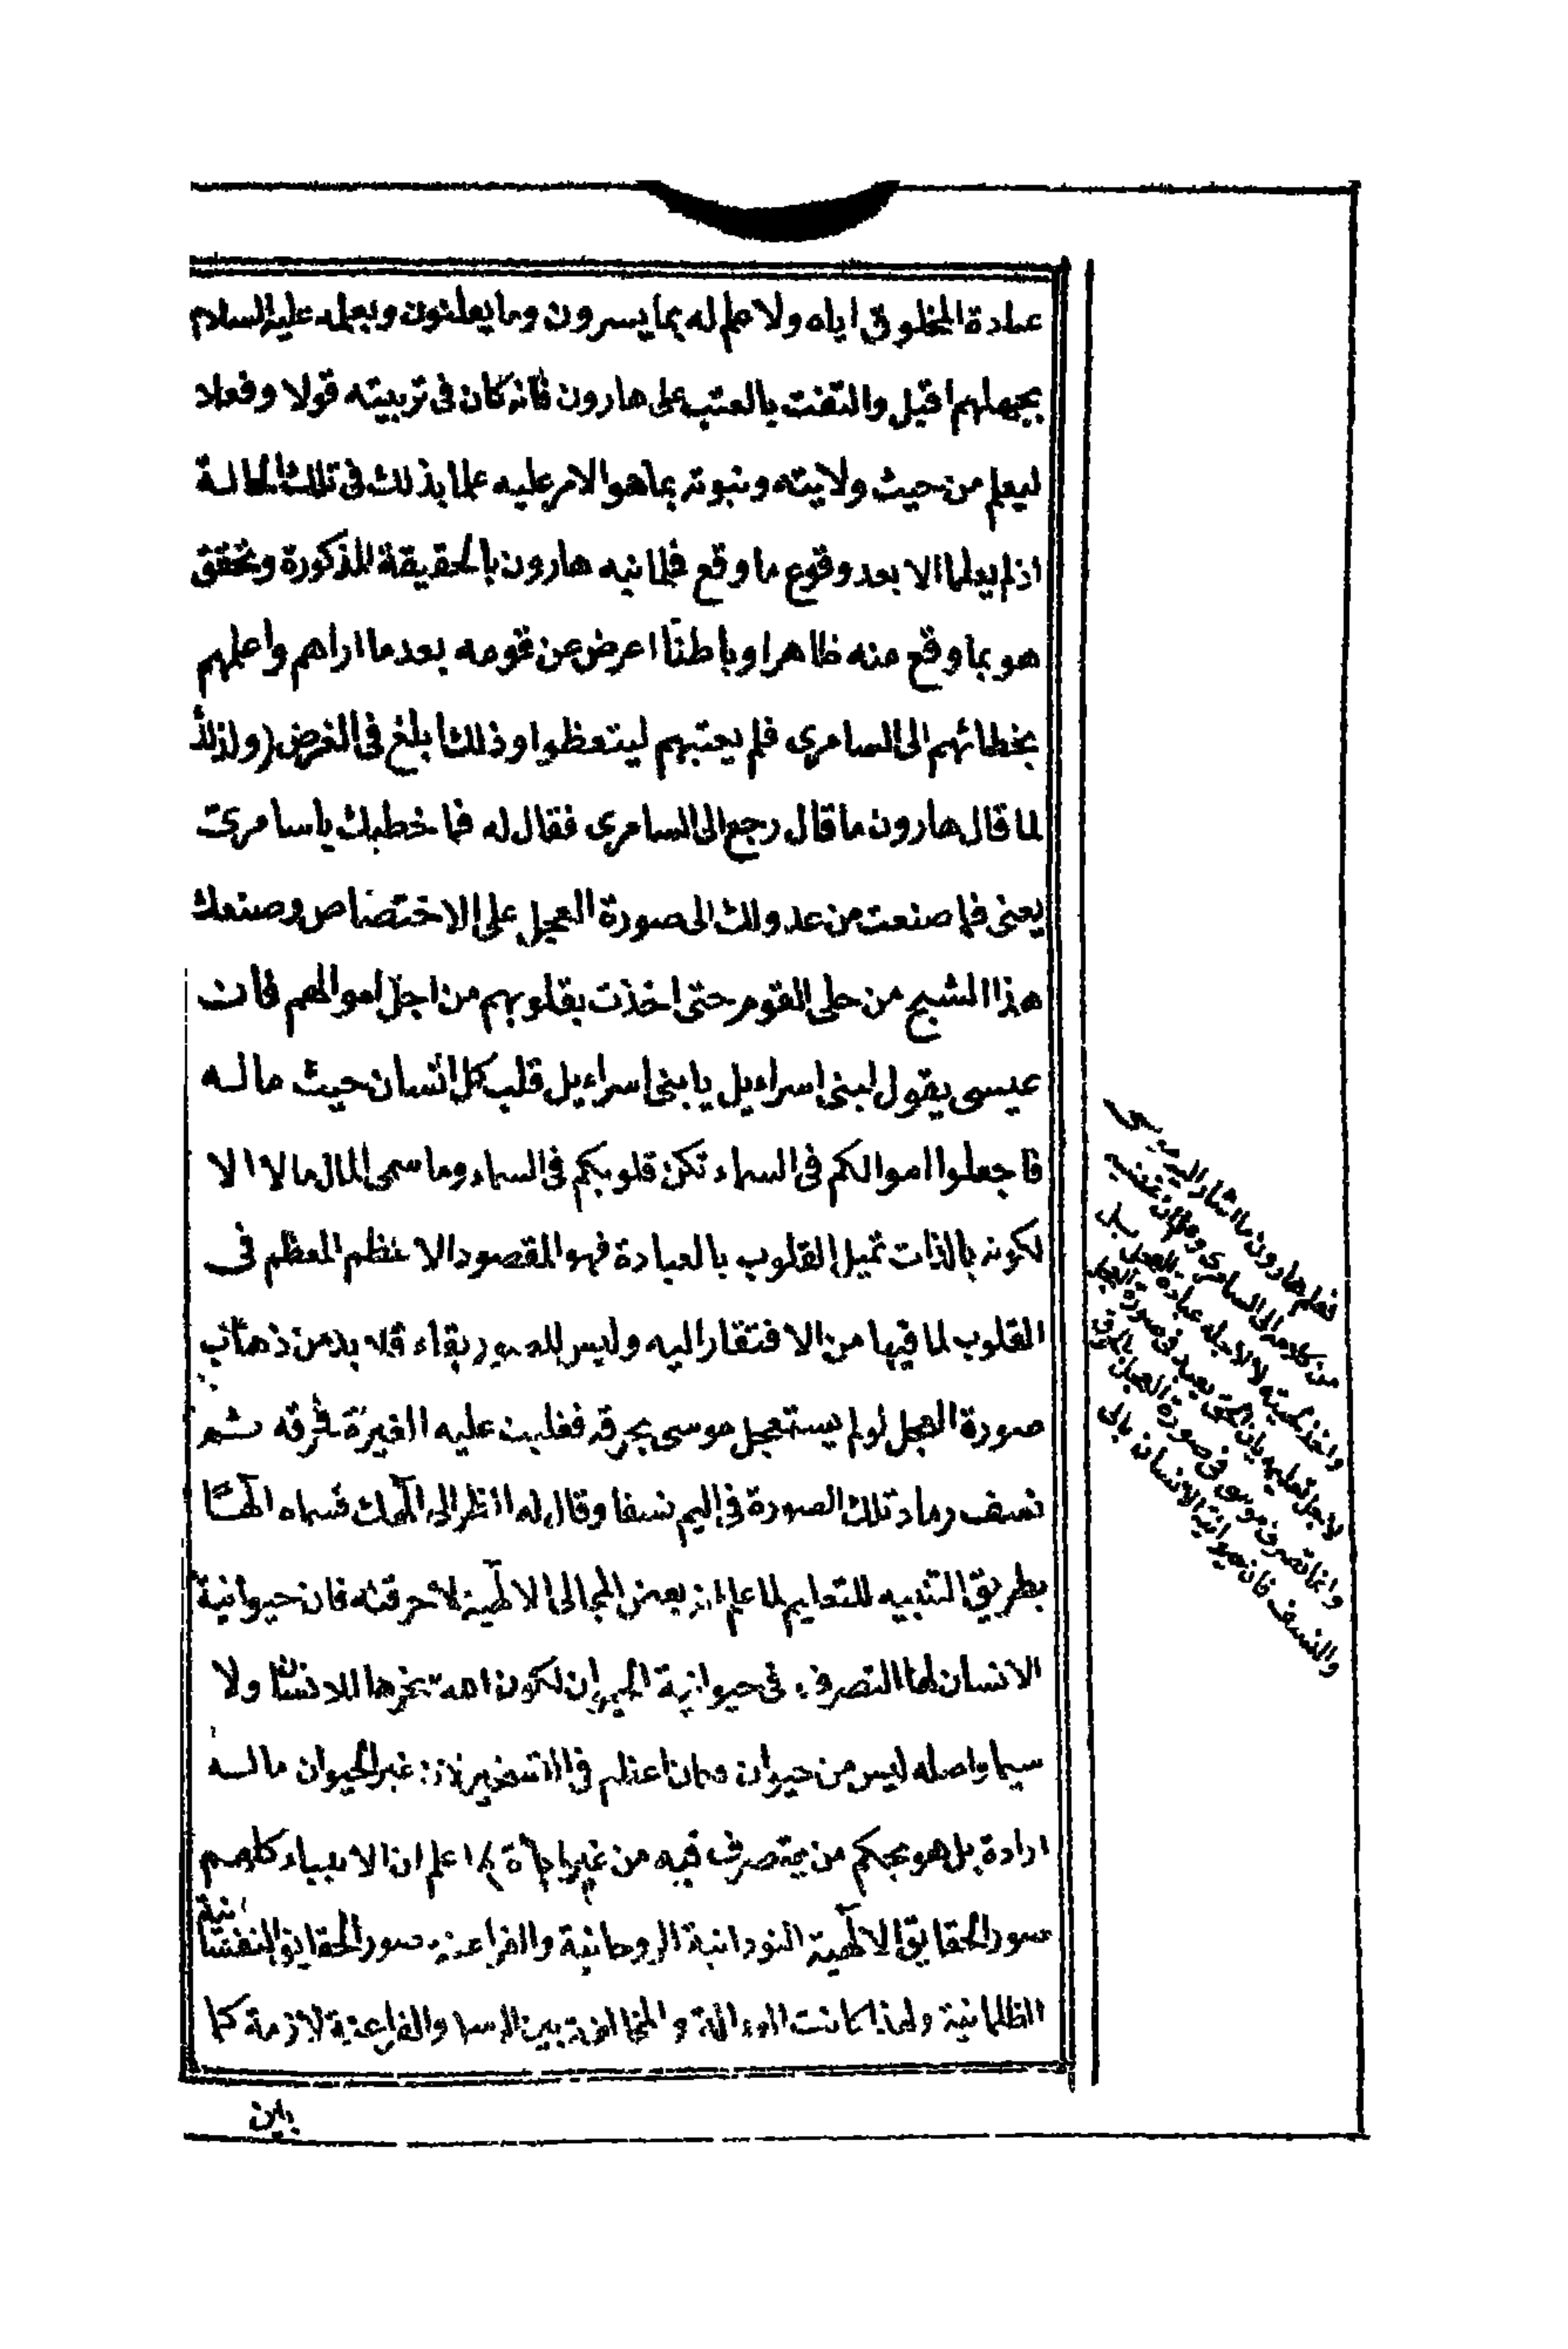 عبادة المخلوق اياه ولا علم له بما يسرون وما يعلنون وبعلمه عليه السلام
بجهلهم اقبل والتفت بالعتب على هارون فانه كان فى تربيته قولا وفعلا
ليعلم من حيث ولايته ونبوته بما هو الامر عليه علما بذلك فى تلك الحالة
اذ لم يعلما الا بعد وقوع ما وقع فلما نبه هارون بالحقيقة المذكورة وتحقق
هو بما وقع منه ظاهرا وباطنا اعرض عن قومه بعد ما اراهم واعلمهم
بخطائهم الى السامرى فلم يجبهم ليتعظوا وذلك ابلغ فى الغرض (ولذلك
لما قال هارون ما قال رجع الى السامرى فقال له فما خطبك ياسامرى
يعنى فيما صنعت من عدولك الى صورة العجل على الاختصاص وصنعك
هذا الشبح من حلى القوم حتى اخذت بقلوبهم من اجل اموالهم فان
عيسى يقول لبنى اسراءيل يا بنى اسراءيل قلب كل انسان حيث ماله
فاجعلوا اموالكم فى السماء تكن قلوبكم فى السماء وما سمى المال مالا الا
لكونه بالذات تميل القلوب بالعبادة فهو المقصود الاعظم المعظم فى
القلوب لما فيها من الافتقار اليه وليس للصور بقاء فلا بد من ذهاب
صورة العجل لو لم يستعجل موسى بحرقه فغلبت عليه الغيرة فحرقه ثم
نسف رماد تلك الصورة فى اليم نسفا وقال له انظر الى الهك فسماه الها
بطريق التنبيه للتعليم لما علم انه بعض المجالى الالهية لاحرقنه فان حيوانية
الانسان لها التصرف فى حيوانية الحيوان لكون الله سخرها للانسان ولا
سيما واصله ليس من حيوان فكان اعظم فى التسخير لان غير الحيوان ماله
ارادة بل هو بحكم من يتصرف فيه من غير اباءة) اعلم ان الانبياء كلهم
صور الحقايق الالهية النورانية الروحانية والفراعنة صور الحقايق النفسانية
الظلمانية ولهذا كانت العداوة والمخالفة بين الرسل والفراعنة لازمة كما
باين
فعلم هارون ما اشار اليه موسى
من كلامه الى السامرى
والنسف فان حيوانية الانسان بالى